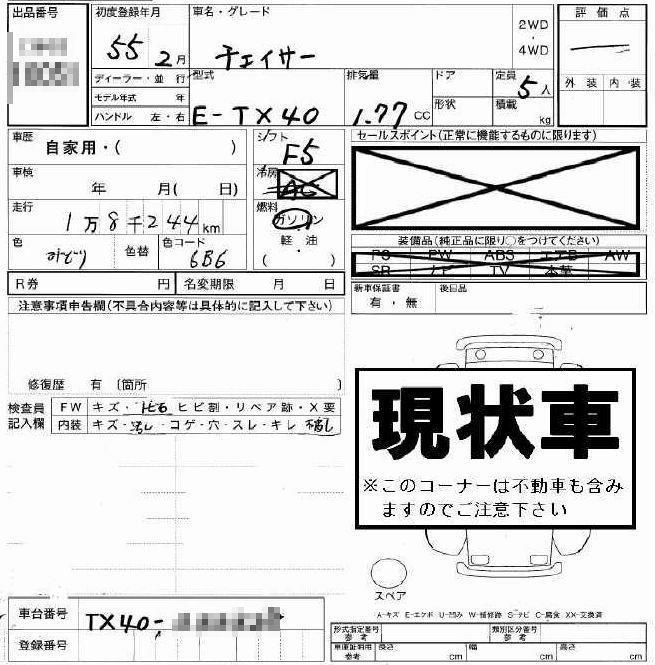 出品番号 初度登録年月 車名・グレード 評価点
55 2月 チェイサー 2WD・4WD
ディーラー・並 行 型式 排気量 ドア 定員 5人 外装 内装
モデル年式 年 E-TX40 1.77 CC 形状 積載 kg
ハンドル 左・右
車歴 自家用・( ) シフト F5 セールスポイント(正常に機能するものに限ります)
車検 年 月( 日) 冷房 AC
走行 1万8千244km 燃料 ガソリン 軽・油 ( )
色 みどり 色替 色コード 6B6 装備品(純正品に限り○をつけてください)
PS PW ABS エアB AW
SR ナビ TV 本革
R券 円 名変期限 月 日 新車保証書 有・無 後日品
注意事項申告欄(不具合内容等は具体的に記入して下さい)
修復歴 有 〔箇所 〕
検査員記入欄 FW キズ・トビ石 ヒビ割・リペア跡・X要
内装 キズ・汚れ・コゲ・穴・スレ・キレ
現状車
※このコーナーは不動車も含み
ますのでご注意下さい
スペア
A-キズ E-エクボ U-凹み W-補修跡 S-サビ C-腐食 XX-交換済
車台番号 TX40-
登録番号
形式指定番号 参考 類別区分番号 参考
車庫証明用 参考 長さ cm 幅 cm 高さ cm